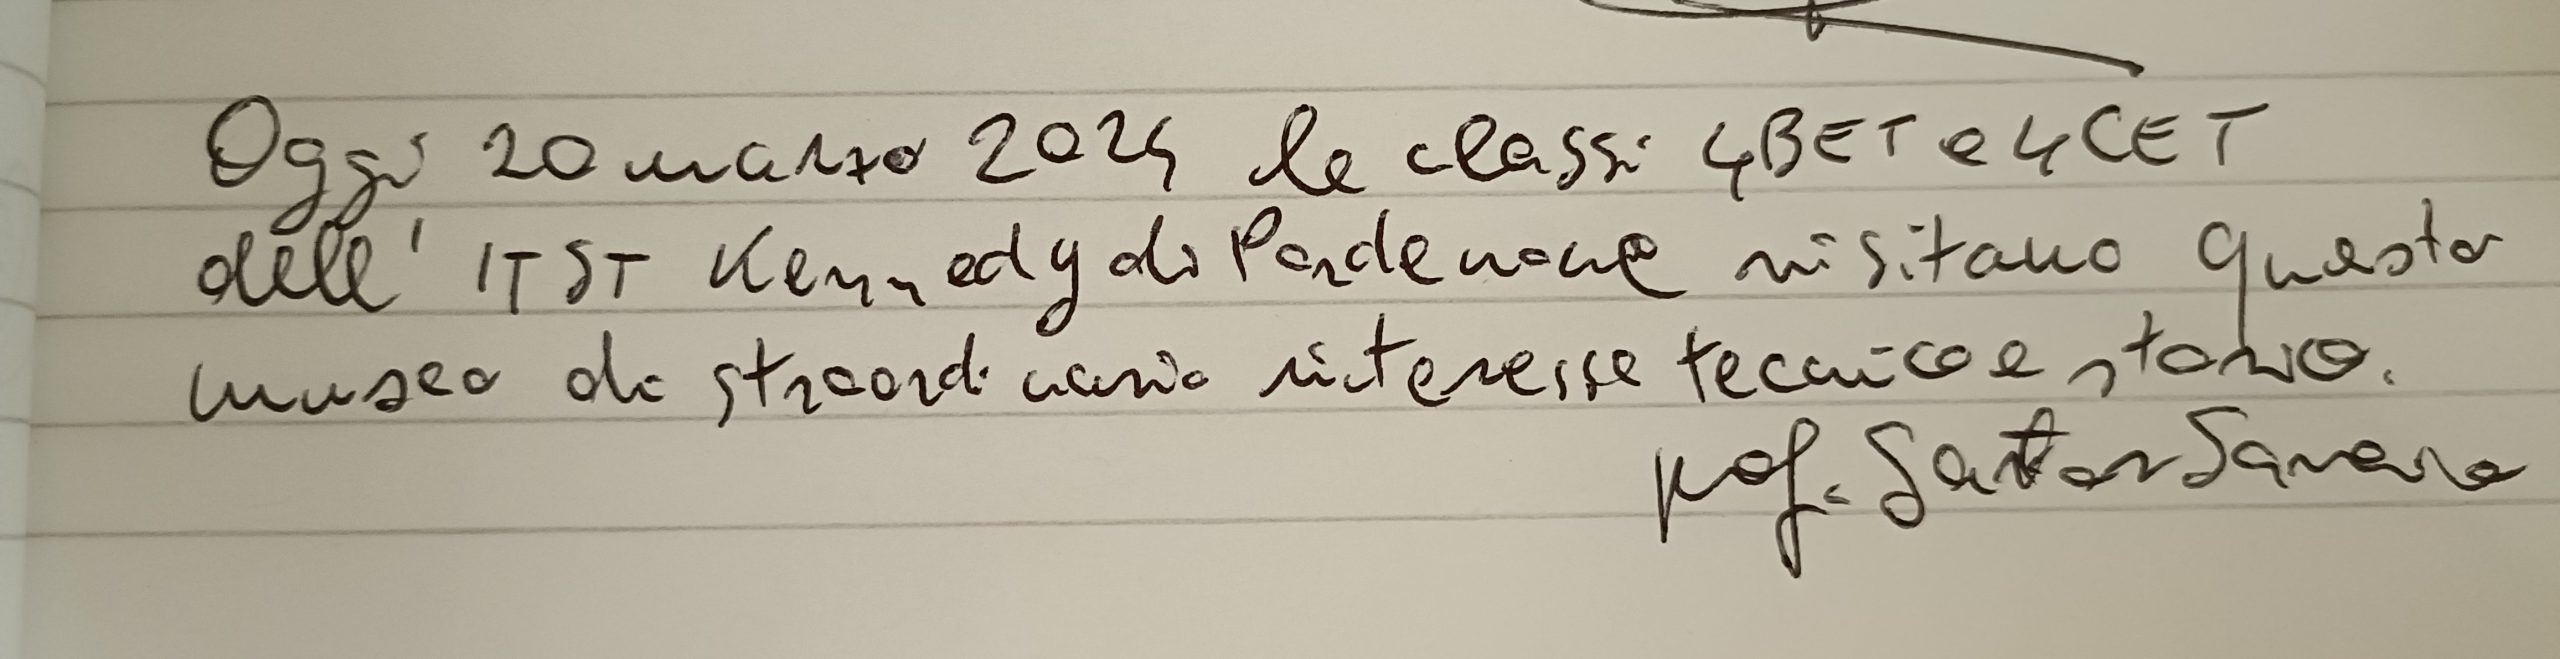 Oggi 20 marzo 2024 le classi 4BET e 4CET
dell' ITST Kennedy di Pordenone visitano questo
museo di straordinario interesse tecnico e storico.
prof. Santor Saverio